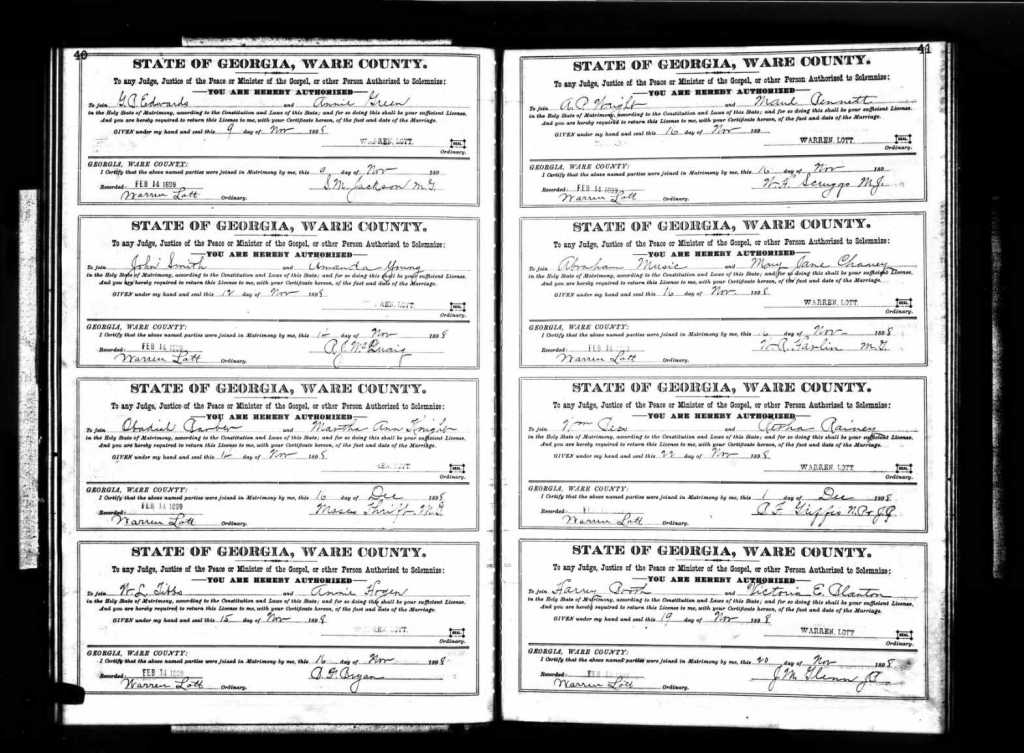 40
STATE OF GEORGIA, WARE COUNTY.
To any Judge, Justice of the Peace or Minister of the Gospel, or other Person Authorized to Solemnize:
YOU ARE HEREBY AUTHORIZED
To join G.C. Edwards and Annie Green
in the Holy State of Matrimony, according to the Constitution and Laws of this State; and for so doing this shall be your sufficient License.
And you are hereby required to return this License to me, with your Certificate hereon, of the fact and date of the Marriage.
GIVEN under my hand and seal this 9 day of Nov 1898
WARREN LOTT SEAL
Ordinary.
GEORGIA, WARE COUNTY:
I Certify that the above named parties were joined in Matrimony by me, this 9 day of Nov 189
Recorded FEB 14 1899 S.M. Jackson M.G.
Warren Lott Ordinary.
STATE OF GEORGIA, WARE COUNTY.
To any Judge, Justice of the Peace or Minister of the Gospel, or other Person Authorized to Solemnize:
YOU ARE HEREBY AUTHORIZED
To join John Smith and Amanda Young
in the Holy State of Matrimony, according to the Constitution and Laws of this State; and for so doing this shall be your sufficient License.
And you are hereby required to return this License to me, with your Certificate hereon, of the fact and date of the Marriage.
GIVEN under my hand and seal this 12 day of Nov 1898
REN LOTT. SEAL
Ordinary.
GEORGIA, WARE COUNTY:
I Certify that the above named parties were joined in Matrimony by me, this 12 day of Nov 1898
Recorded FEB 14 1899 A.J. McQuaig
Warren Lott Ordinary.
STATE OF GEORGIA, WARE COUNTY.
To any Judge, Justice of the Peace or Minister of the Gospel, or other Person Authorized to Solemnize:
YOU ARE HEREBY AUTHORIZED
To join Obadiel Barber and Martha Ann Knight
in the Holy State of Matrimony, according to the Constitution and Laws of this State; and for so doing this shall be your sufficient License.
And you are hereby required to return this License to me, with your Certificate hereon, of the fact and date of the Marriage.
GIVEN under my hand and seal this 12 day of Nov 1898
LOTT SEAL
Ordinary.
GEORGIA, WARE COUNTY:
I Certify that the above named parties were joined in Matrimony by me, this 16 day of Dec 1898
Recorded FEB 14 1899 Moses Thrift M.G.
Warren Lott Ordinary.
STATE OF GEORGIA, WARE COUNTY.
To any Judge, Justice of the Peace or Minister of the Gospel, or other Person Authorized to Solemnize:
YOU ARE HEREBY AUTHORIZED
To join W.L. Tibbs and Annie
in the Holy State of Matrimony, according to the Constitution and Laws of this State; and for so doing this shall be your sufficient License.
And you are hereby required to return this License to me, with your Certificate hereon, of the fact and date of the Marriage.
GIVEN under my hand and seal this 15 day of Nov 1898
EN LOTT. SEAL
Ordinary.
GEORGIA, WARE COUNTY:
I Certify that the above named parties were joined in Matrimony by me, this 16 day of Nov 1898
Recorded FEB 14 1899 Bryan
Warren Lott Ordinary.
41
STATE OF GEORGIA, WARE COUNTY.
To any Judge, Justice of the Peace or Minister of the Gospel, or other Person Authorized to Solemnize:
YOU ARE HEREBY AUTHORIZED
To join A.P. Wright and Maud Bennett
in the Holy State of Matrimony, according to the Constitution and Laws of this State; and for so doing this shall be your sufficient License.
And you are hereby required to return this License to me, with your Certificate hereon, of the fact and date of the Marriage.
GIVEN under my hand and seal this 16 day of Nov 189
WARREN LOTT SEAL
Ordinary.
GEORGIA, WARE COUNTY:
I Certify that the above named parties were joined in Matrimony by me, this 16 day of Nov 189
Recorded FEB 14 1899 W.F. Scruggs M.G.
Warren Lott Ordinary.
STATE OF GEORGIA, WARE COUNTY.
To any Judge, Justice of the Peace or Minister of the Gospel, or other Person Authorized to Solemnize:
YOU ARE HEREBY AUTHORIZED
To join Abraham Music and Mary Jane Chancy
in the Holy State of Matrimony, according to the Constitution and Laws of this State; and for so doing this shall be your sufficient License.
And you are hereby required to return this License to me, with your Certificate hereon, of the fact and date of the Marriage.
GIVEN under my hand and seal this 16 day of Nov 1898
WARREN LOTT SEAL
Ordinary.
GEORGIA, WARE COUNTY:
I Certify that the above named parties were joined in Matrimony by me, this 16 day of Nov 1898
Recorded FEB 14 M.G.
Warren Lott Ordinary.
STATE OF GEORGIA, WARE COUNTY.
To any Judge, Justice of the Peace or Minister of the Gospel, or other Person Authorized to Solemnize:
YOU ARE HEREBY AUTHORIZED
To join Wm and Rainey
in the Holy State of Matrimony, according to the Constitution and Laws of this State; and for so doing this shall be your sufficient License.
And you are hereby required to return this License to me, with your Certificate hereon, of the fact and date of the Marriage.
GIVEN under my hand and seal this 22 day of Nov 1898
WARREN LOTT SEAL
Ordinary.
GEORGIA, WARE COUNTY:
I Certify that the above named parties were joined in Matrimony by me, this 1 day of Dec 1898
Recorded
Warren Lott Ordinary.
STATE OF GEORGIA, WARE COUNTY.
To any Judge, Justice of the Peace or Minister of the Gospel, or other Person Authorized to Solemnize:
YOU ARE HEREBY AUTHORIZED
To join Booth and Victoria E. Blanton
in the Holy State of Matrimony, according to the Constitution and Laws of this State; and for so doing this shall be your sufficient License.
And you are hereby required to return this License to me, with your Certificate hereon, of the fact and date of the Marriage.
GIVEN under my hand and seal this 19 day of Nov 1898
WARREN LOTT SEAL
Ordinary.
GEORGIA, WARE COUNTY:
I Certify that the above named parties were joined in Matrimony by me, this 20 day of Nov 1898
Recorded FEB J.M. Glenn
Warren Lott Ordinary.